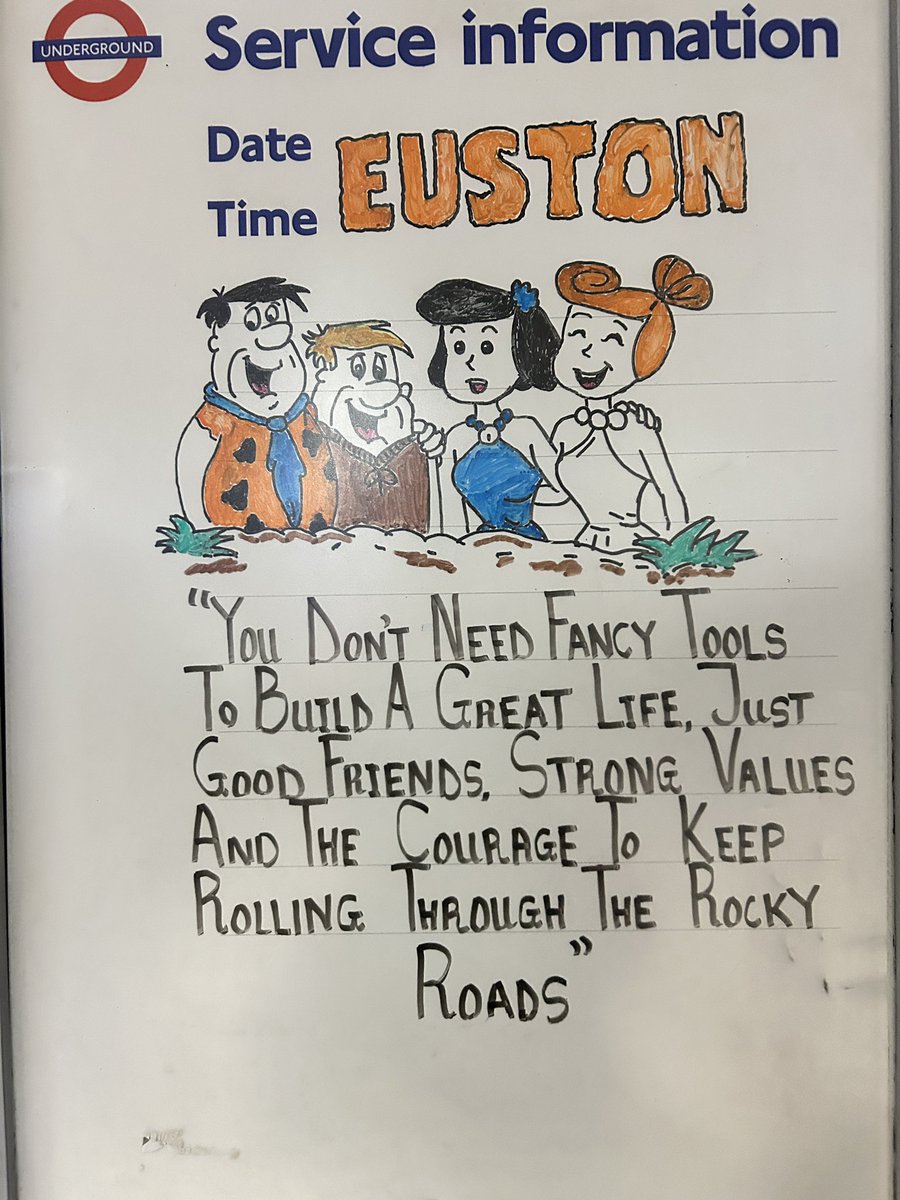 UNDERGROUND
Service information
Date
Time
EUSTON
"You Don't Need Fancy Tools
To Build A Great Life, Just
Good Friends, Strong Values
And The Courage To Keep
Rolling Through The Rocky
Roads"